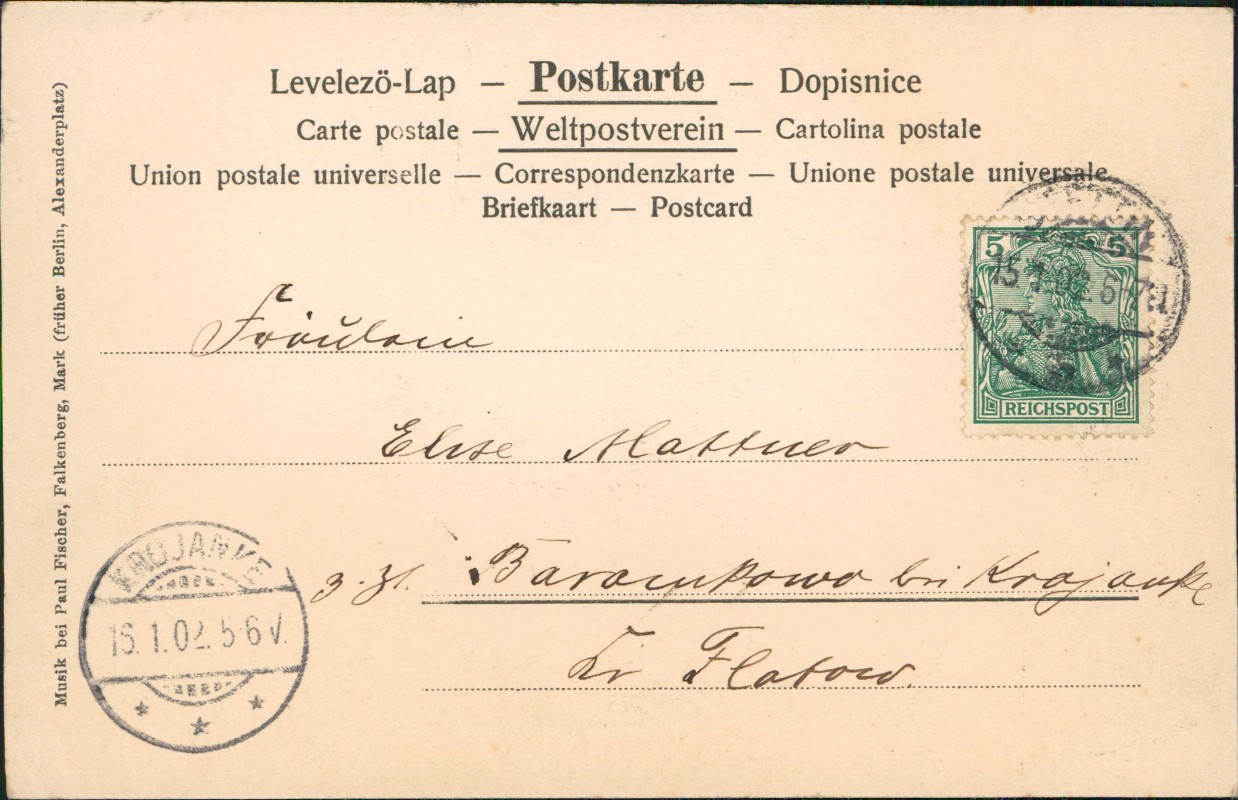 Levelezö-Lap — Postkarte — Dopisnice
Carte postale — Weltpostverein — Cartolina postale
Union postale universelle — Correspondenzkarte — Unione postale universale
Briefkaart — Postcard
5 5
REICHSPOST
Fräulein
Elise Mattner
z. Zt. Baramkowo bei Krojanke
Kr Flatow
KROJANKE
16. 1. 02. 5-6 V.
Musik bei Paul Fischer, Falkenberg, Mark (früher Berlin, Alexanderplatz)